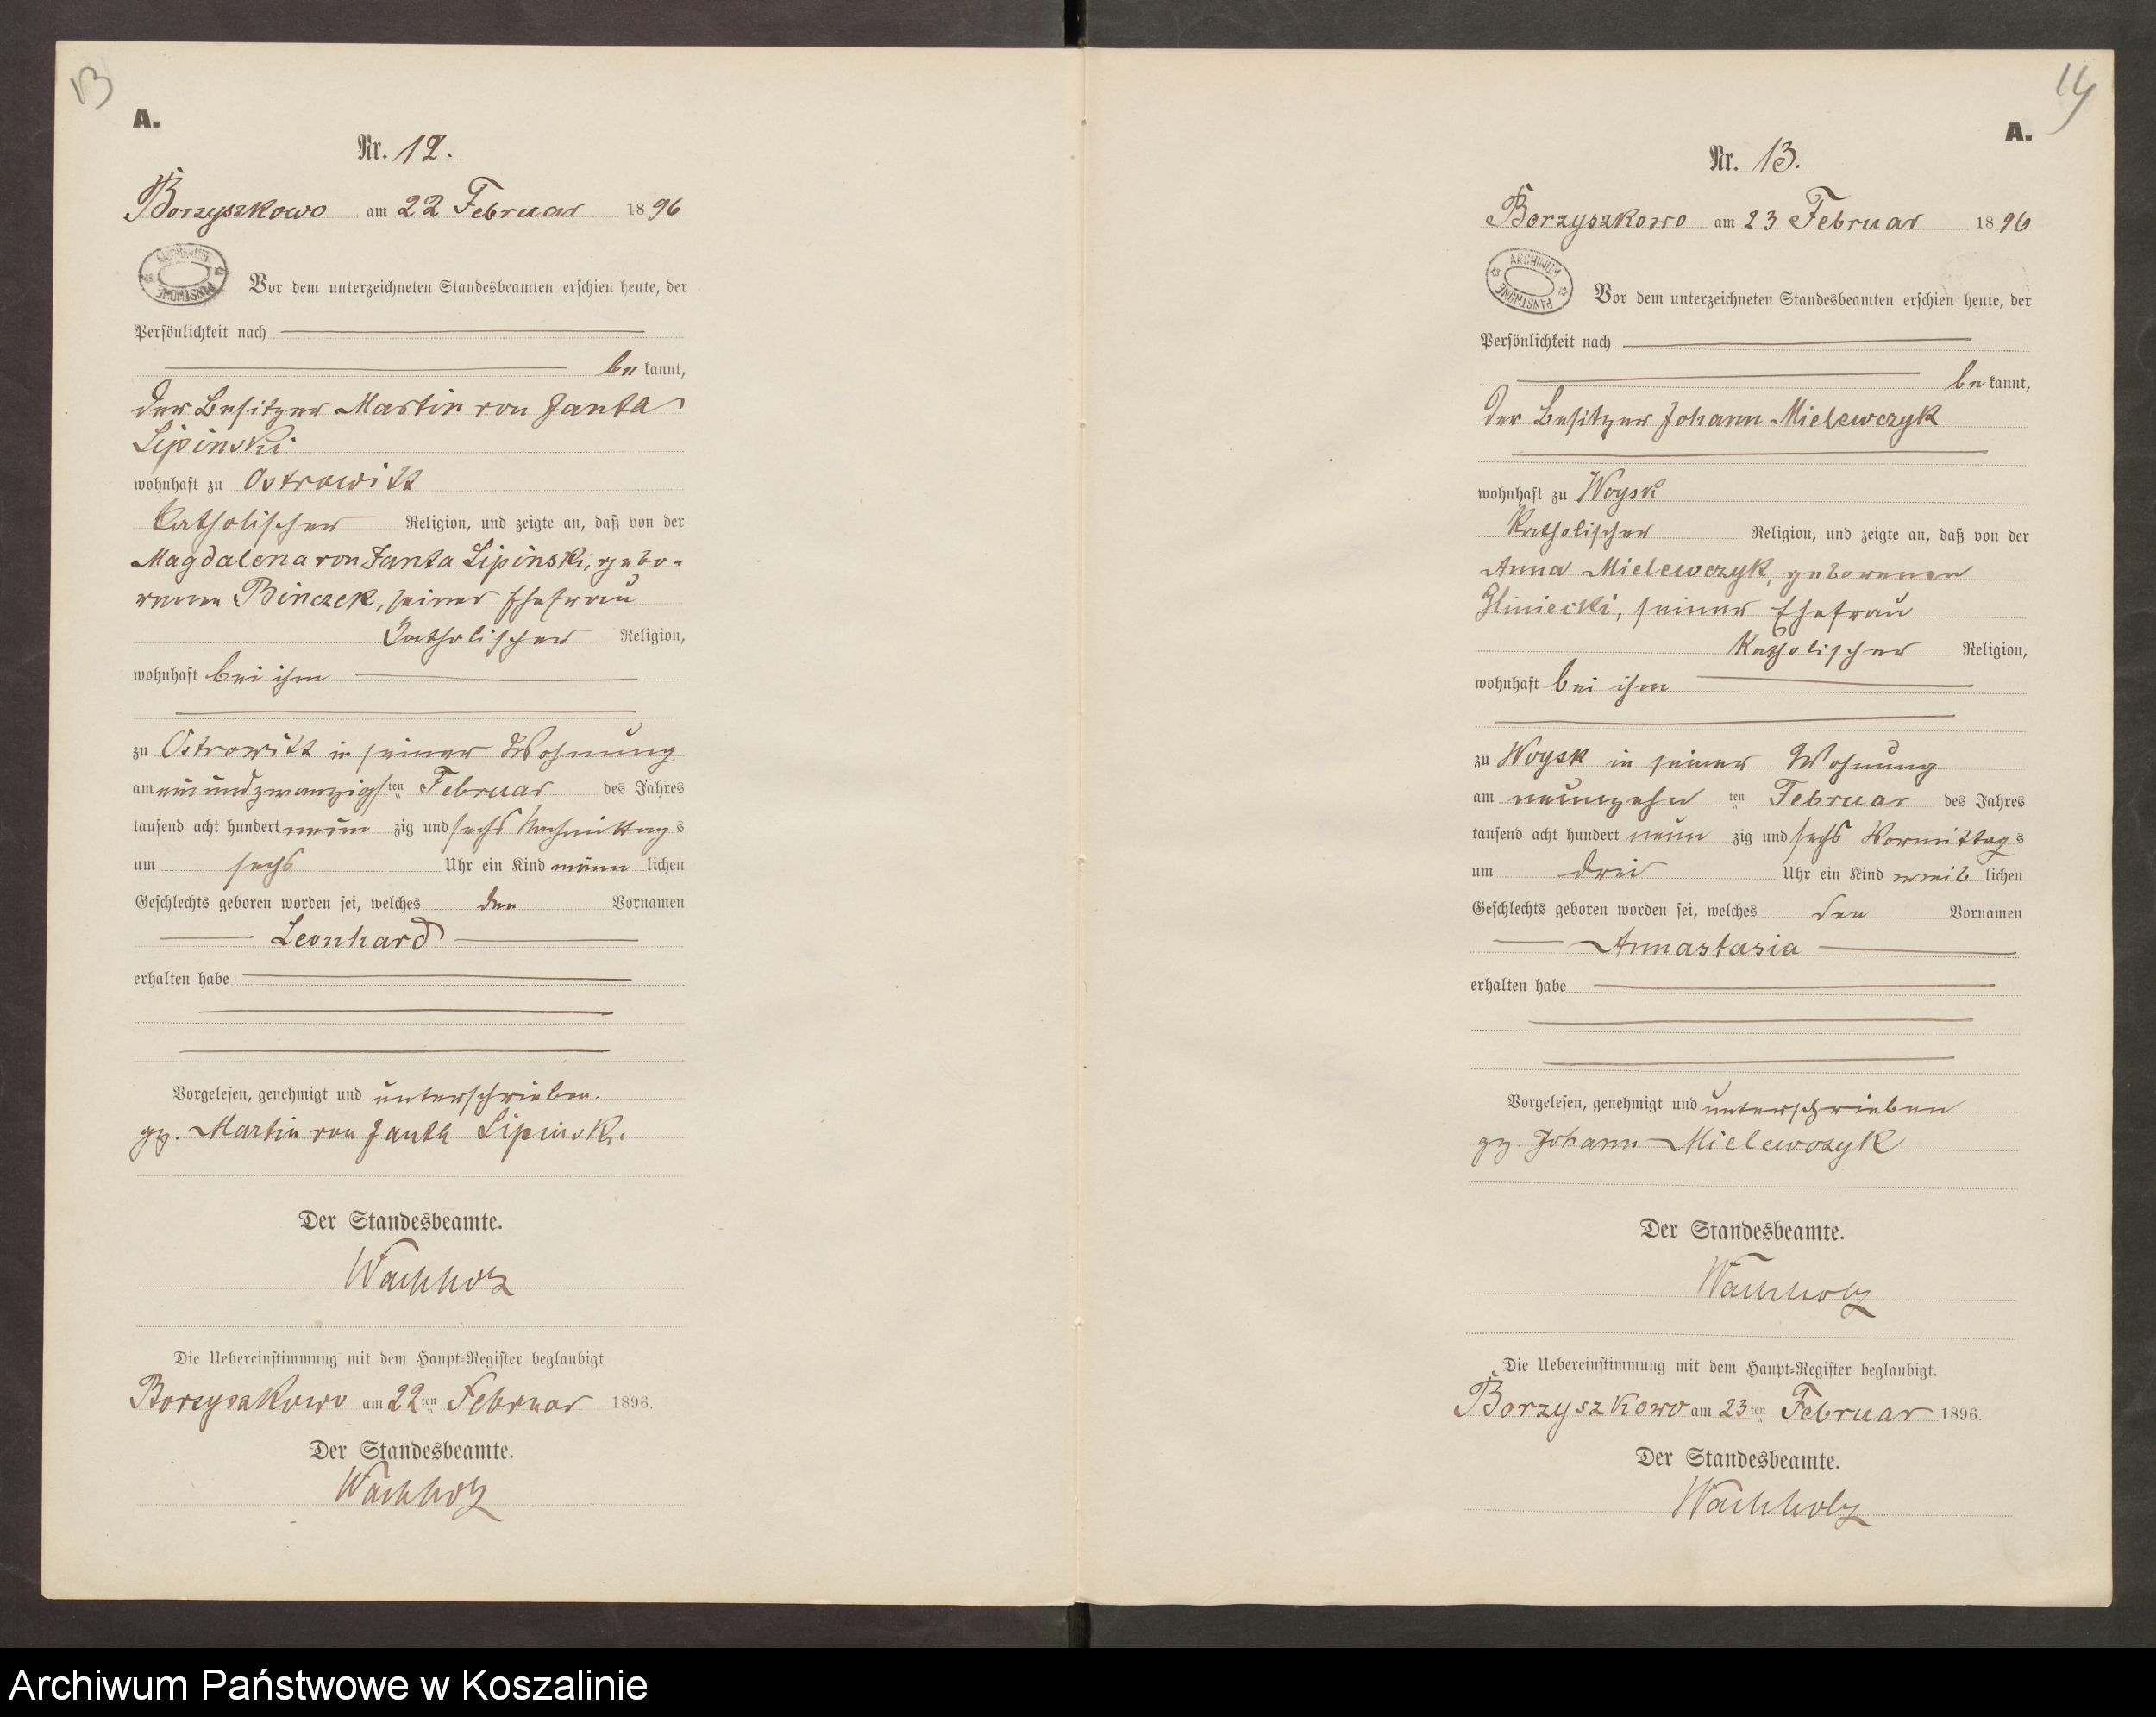 13
A.
Nr. 12.
Borzyszkowo am 22 Februar 1896
ARCHIWUM PAŃSTWOWE
Vor dem unterzeichneten Standesbeamten erschien heute, der
Persönlichkeit nach
be kannt,
der Besitzer Martin von Janta
Lipinski
wohnhaft zu Ostrowitt
katholischer Religion, und zeigte an, daß von der
Magdalena von Janta Lipinski, gebo-
renen Binczek, seiner Ehefrau
katholischer Religion,
wohnhaft bei ihm
zu Ostrowitt in seiner Wohnung
am einundzwanzigsten Februar des Jahres
tausend acht hundert neun zig und sechs Nachmittags
um sechs Uhr ein Kind männ lichen
Geschlechts geboren worden sei, welches den Vornamen
Leonhard
erhalten habe
Vorgelesen, genehmigt und unterschrieben.
gz. Martin von Janta Lipinski.
Der Standesbeamte.
Wachholz
Die Uebereinstimmung mit dem Haupt-Register beglaubigt
Borzyszkowo am 22ten Februar 1896.
Der Standesbeamte.
Wachholz
14
A.
Nr. 13.
Borzyszkowo am 23 Februar 1896
ARCHIWUM PAŃSTWOWE
Vor dem unterzeichneten Standesbeamten erschien heute, der
Persönlichkeit nach
be kannt,
der Besitzer Johann Mielewczyk
wohnhaft zu Woysk
katholischer Religion, und zeigte an, daß von der
Anna Mielewczyk, geborenen
Gliniecki, seiner Ehefrau
katholischer Religion,
wohnhaft bei ihm
zu Woysk in seiner Wohnung
am neunzehn ten Februar des Jahres
tausend acht hundert neun zig und sechs Vormittags
um drei Uhr ein Kind weib lichen
Geschlechts geboren worden sei, welches den Vornamen
Annastasia
erhalten habe
Vorgelesen, genehmigt und unterschrieben
gz. Johann Mielewczyk
Der Standesbeamte.
Wachholz
Die Uebereinstimmung mit dem Haupt-Register beglaubigt.
Borzyszkowo am 23ten Februar 1896.
Der Standesbeamte.
Wachholz
Archiwum Państwowe w Koszalinie